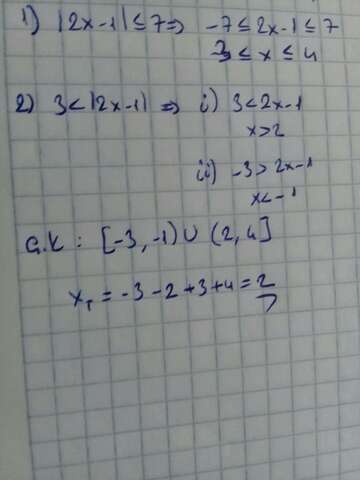 1) |2x-1| ≤ 7 ⇒ -7 ≤ 2x-1 ≤ 7
≤ x ≤ 4
2) 3 < |2x-1| ⇒ i) 3 < 2x-1
x > 2
ii) -3 > 2x-1
x < -1
Ç.K : [-3, -1) ∪ (2, 4]
x_T = -3 - 2 + 3 + 4 = 2